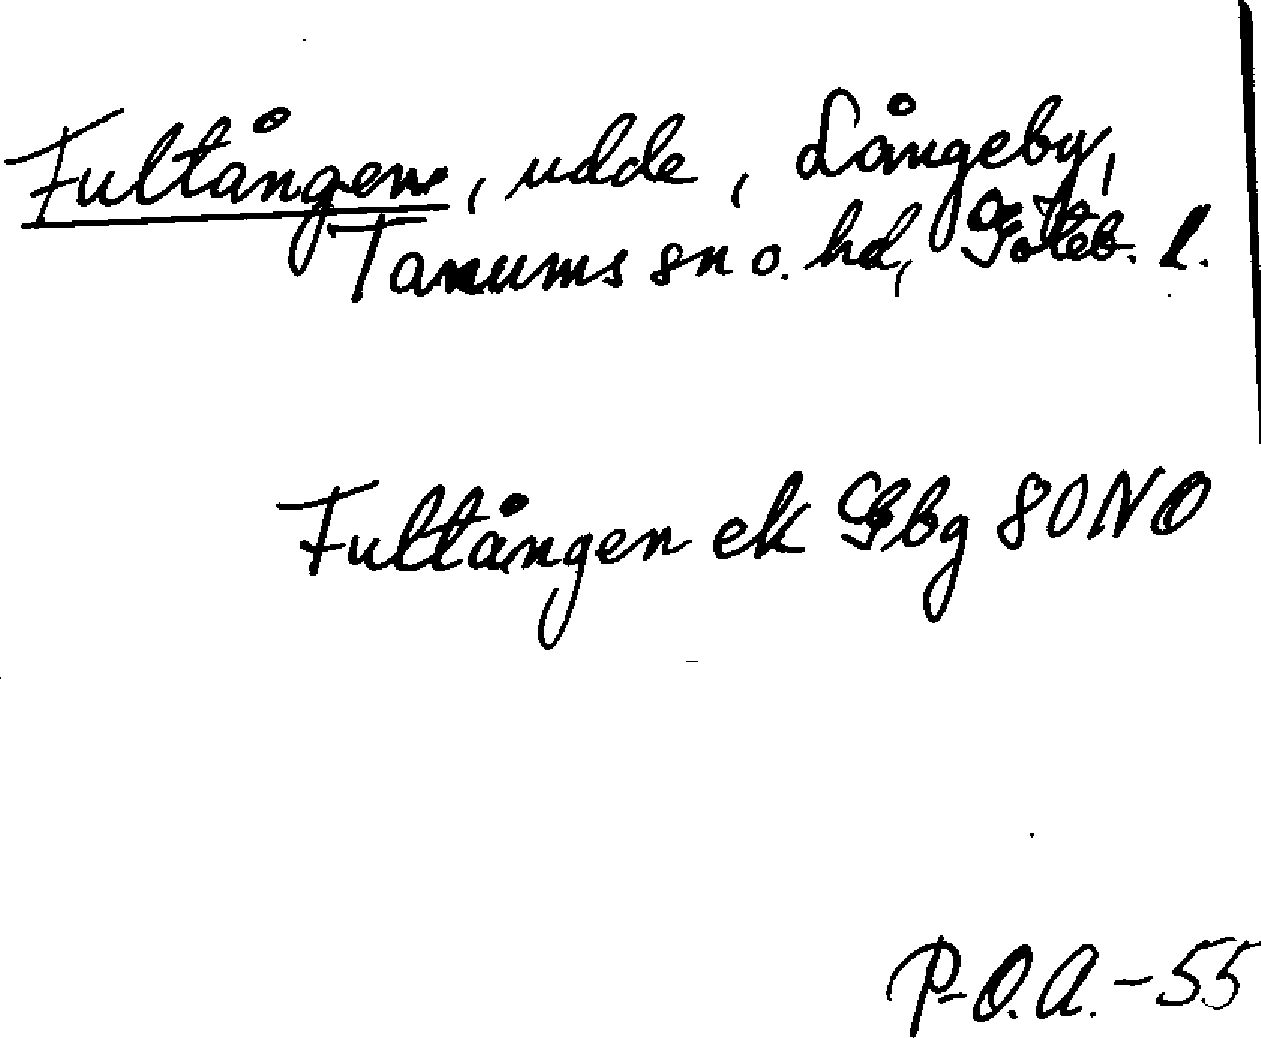 Fultången, udde, Långeby,
Tanums sn o. hd, Göteb. l.
Fultången ek Gbg 80NO
P-O.A.-55